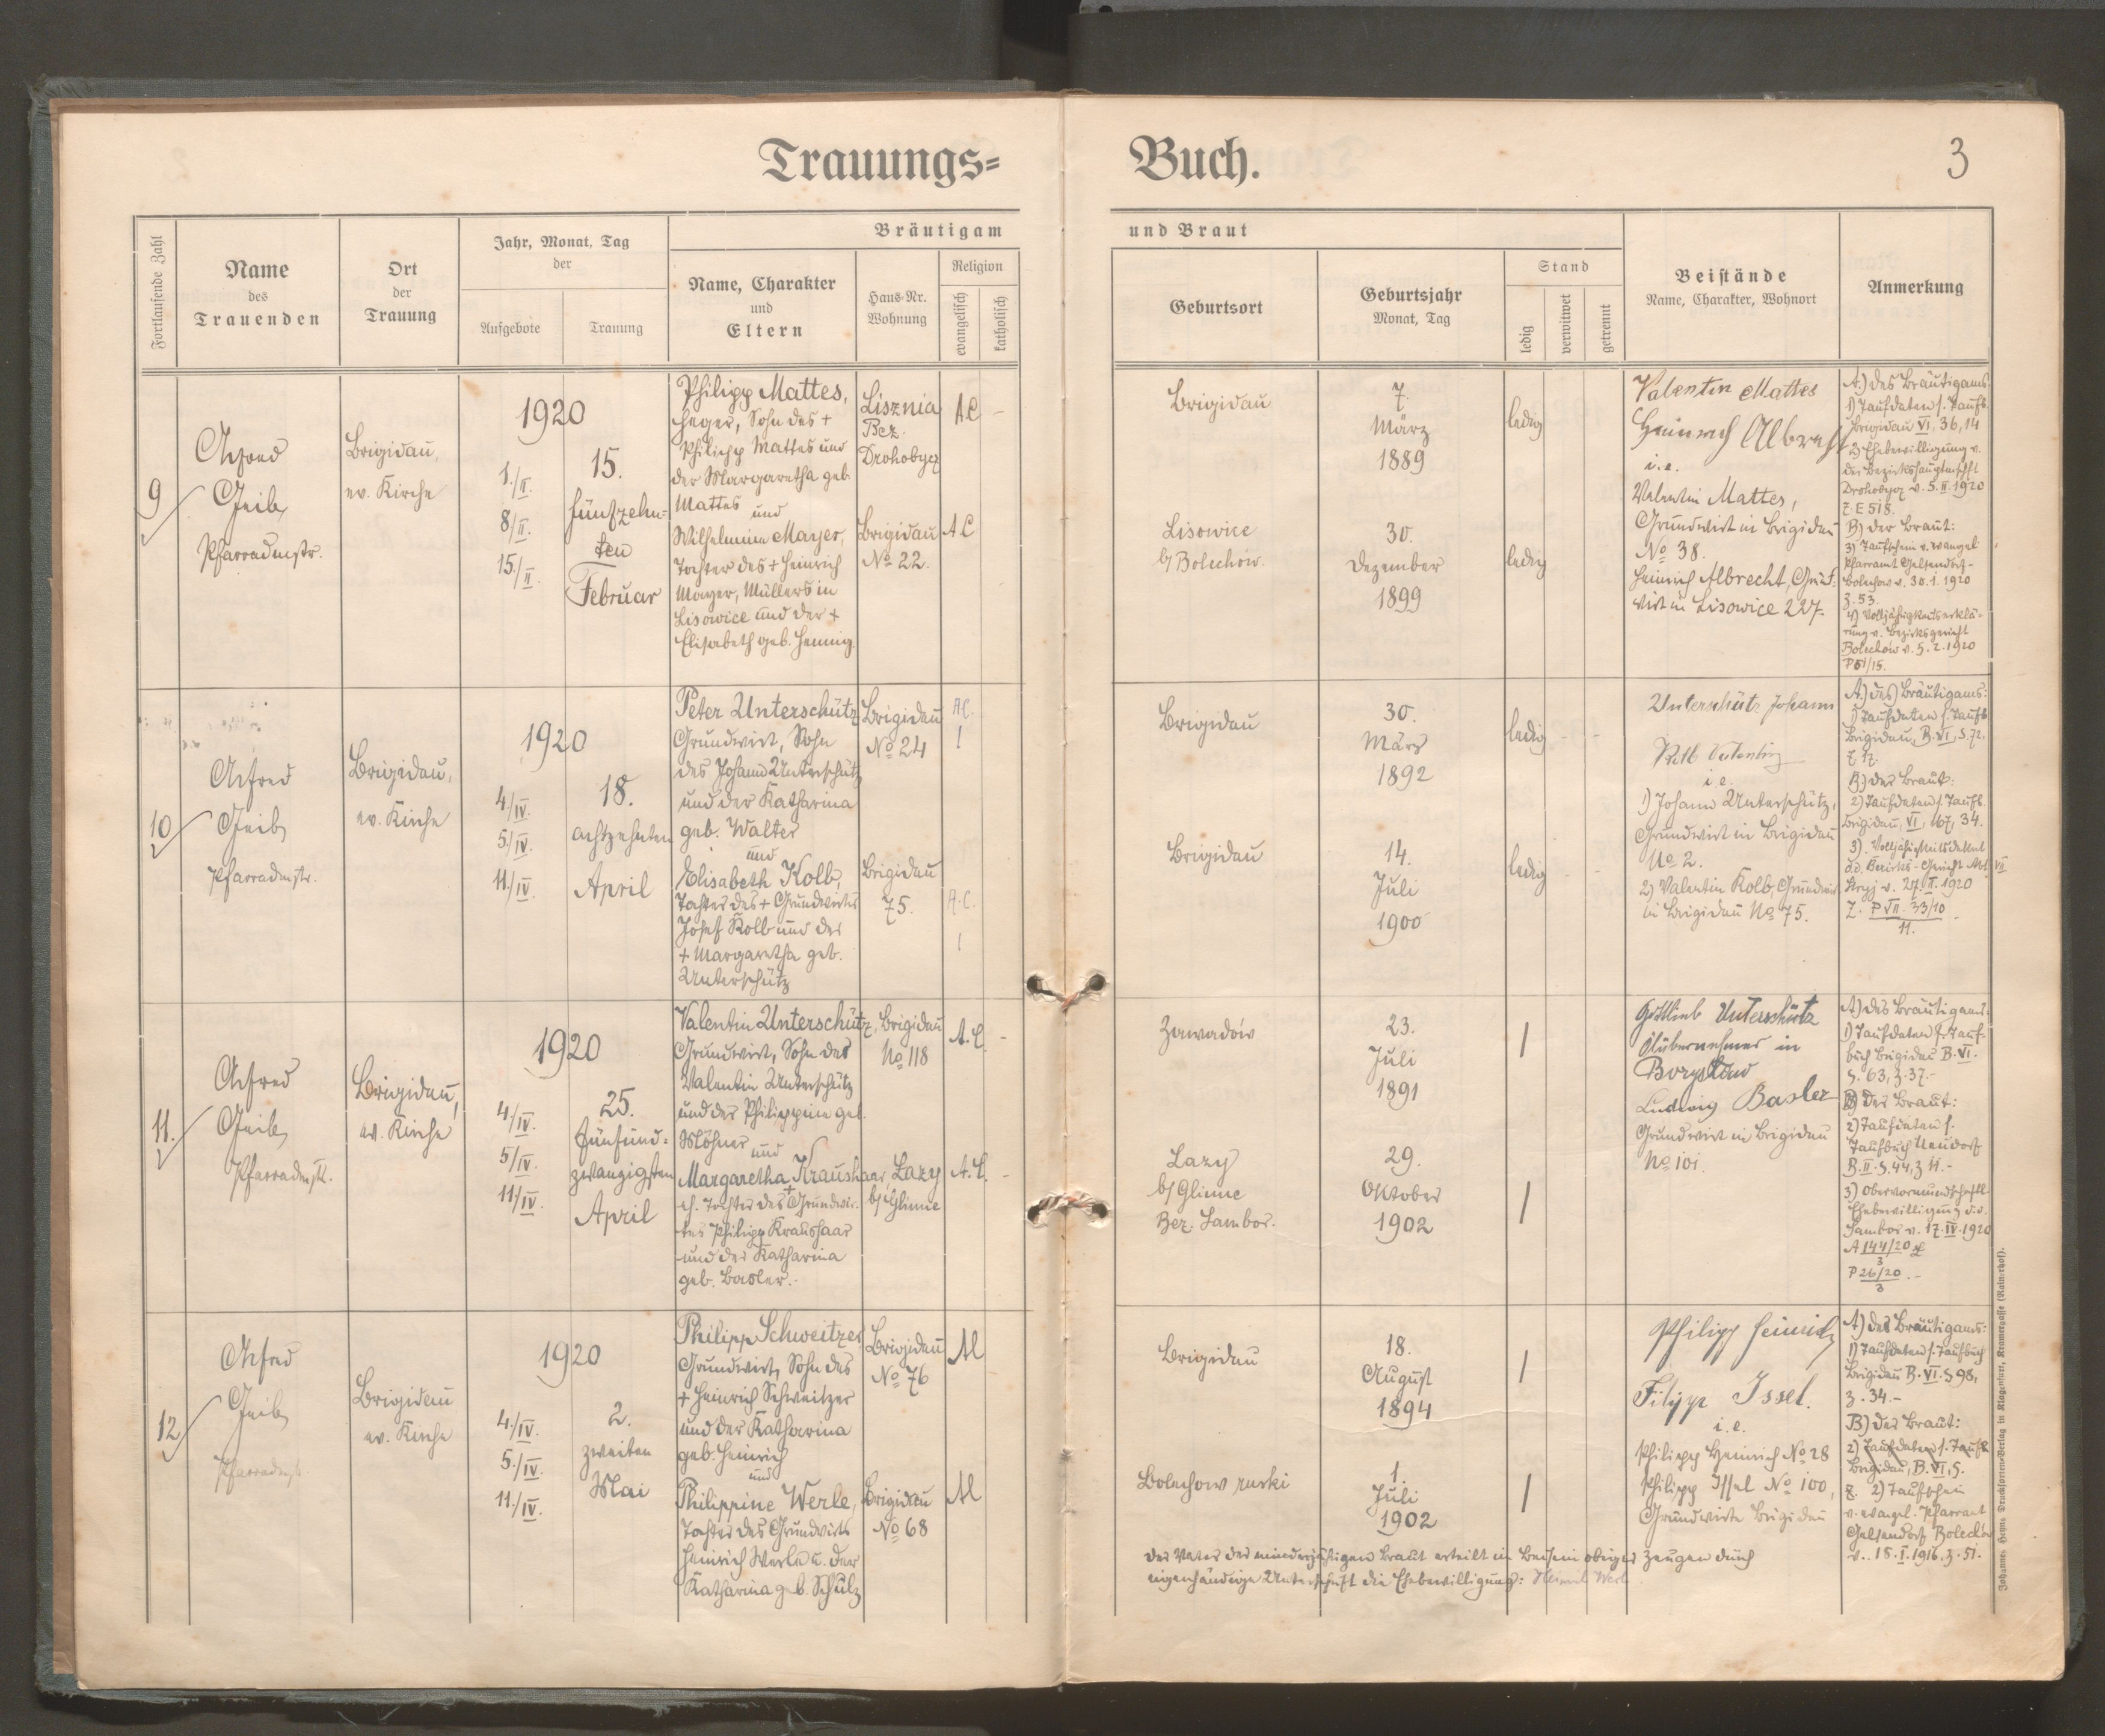 Trauungs-
Buch.
3
Fortlaufende Zahl
Name
des
Trauenden
Ort
der
Trauung
Jahr, Monat, Tag
der
Aufgebote
Trauung
Bräutigam
Name, Charakter
und
Eltern
Haus-Nr.
Wohnung
Religion
evangelisch
katholisch
und Braut
Geburtsort
Geburtsjahr
Monat, Tag
Stand
ledig
verwitwet
getrennt
Beistände
Name, Charakter, Wohnort
Anmerkung
9
Alfred
Geib,
Pfarradmstr.
Brigidau,
ev. Kirche
1920
1./II.
8/II.
15./II.
15.
fünfzehn-
ten
Februar
Philipp Mattes,
Heger, Sohn des +
Philipp Mattes und
der Margaretha geb.
Mattes und
Wilhelmine Mayer,
Tochter des + Heinrich
Mayer, Müllers in
Lisowice und der +
Elisabeth geb. Hennig.
Lisznia
Bez.
Drohobycz
Brigidau
No 22.
A.C -
A C
Brigidau
7.
März
1889
ledig
Lisowice
b/ Bolechow.
30.
Dezember
1899
ledig
Valentin Mattes
Heinrich Albrecht
i. e.
Valentin Mattes,
Grundwirt in Brigidau
No 38.
Heinrich Albrecht, Grund-
wirt in Lisowice 227.
A.) des Bräutigams:
1) Taufdaten s. Taufb.
Brigidau VI, 36, 14
2) Ehebewilligung v.
der Bezirkshauptmschft
Drohobycz v. 5. II. 1920
Z E 518.
B) der Braut:
3) Taufschein v. evangel
Pfarramt Gelsendorf-
Bolechow v. 30.1.1920
Z. 53.
4) Volljährigkeitserklä-
rung v. Bezirksgericht
Bolechow v. 5.2.1920
P 61/15.
10
Alfred
Geib,
Pfarradmstr.
Brigidau,
ev. Kirche
1920
4/IV.
5/IV.
11./IV.
18.
achtzehnten
April
Peter Unterschütz
Grundwirt, Sohn
des Johann Unterschütz
und der Katharina
geb. Walter
und
Elisabeth Kolb,
Tochter des + Grundwirtes
Josef Kolb und der
+ Margaretha geb.
Unterschütz
Brigidau
No 24
Brigidau
75.
A.C.
A.C.
Brigidau
30.
März
1892
ledig - -
Brigidau
14.
Juli
1900
ledig - -
Unterschütz Johann
Kolb Valentin
i e.
1) Johann Unterschütz,
Grundwirt in Brigidau
No 2.
2) Valentin Kolb, Grundwirt
in Brigidau No 75.
A.) des Bräutigams:
1) Taufdaten s. Taufb.
Brigidau, B. VI, S. 72,
B.) der Braut:
2) Taufdaten s. Taufb.
Brigidau, VI, 167, 34.
Stryj v. 27. II. 1920
Z. P VII. 33/10
11.
11.
Alfred
Geib,
Pfarradmstr.
Brigidau,
ev. Kirche
1920
4/IV.
5/IV.
11/IV.
25.
fünfund-
zwanzigsten
April
Valentin Unterschütz,
Grundwirt, Sohn des
Valentin Unterschütz
und der Philippine geb.
Möhner und
Margaretha Kraushaar,
eh. Tochter des + Grundwir-
tes Philipp Kraushaar
und der Katharina
geb. Basler.
Brigidau
No 118
Lazy
b/ Glinne
A. C. -
A. C. -
Zawadów
23.
Juli
1891
Lazy
b/ Glinne
Bez. Sambor.
29.
Oktober
1902
Gottlieb Unterschütz
Ölübernehmer in
Boryslaw
Ludwig Basler
Grundwirt in Brigidau
No 101.
A) des Bräutigams:
1) Taufdaten s. Tauf-
buch Brigidau B. VI.
S. 63, Z. 37.-
B) der Braut:
2) Taufdaten s.
Taufbuch Neudorf
B. II. S. 44, Z 11.-
3) Obervormundschaftl.
Ehebewilligung d.d.
Sambor v. 17. IV. 1920
A 144/20
3
P 26/20.-
3
12
Alfred
Geib,
Pfarradmstr.
Brigidau
ev. Kirche
1920
4./IV.
5./IV.
11./IV.
2.
zweiten
Mai
Philipp Schweitzer
Grundwirt, Sohn des
+ Heinrich Schweitzer
und der Katharina
geb. Heinrich
und
Philippine Werle,
Tochter des Grundwirts
Heinrich Werle u. der
Katharina geb. Schulz
Brigidau
No 76
Brigidau
No 68
AC
AC
Brigidau
18.
August
1894
Bolechow ruski
1.
Juli
1902
Philipp Heinrich
Filipp Issel.
i. e.
Philipp Heinrich No 28
Philipp Issel No 100,
Grundwirte Brigidau
A) des Bräutigams:
1) Taufdaten s. Taufbuch
Brigidau B. VI. S 98,
Z. 34.-
B) der Braut:
2) Taufdaten s. Taufb.
Brigidau, B. VI, S.
Z. 2) Taufschein
v. evangel. Pfarramt
Gelsendorf Bolechow
v. 18. I. 1916. Z. 51.
Der Vater der minderjährigen Braut erteilt im Beisein obiger Zeugen durch
eigenhändige Unterschrift die Ehebewilligung: Heinrich Werle
Johannes Heyns Drucksorten-Verlag in Klagenfurt, Kramergasse (Rainerhof).